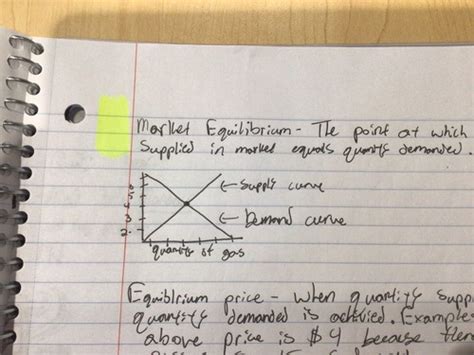 Market Equilibrium - The point at which
Supplied in market equals quantity demanded.
← Supply curve
← Demand curve
2
quantity of gas
Equiblrium price - when quantity supp
quantity demanded is achived. Examples
above price is $4 because then